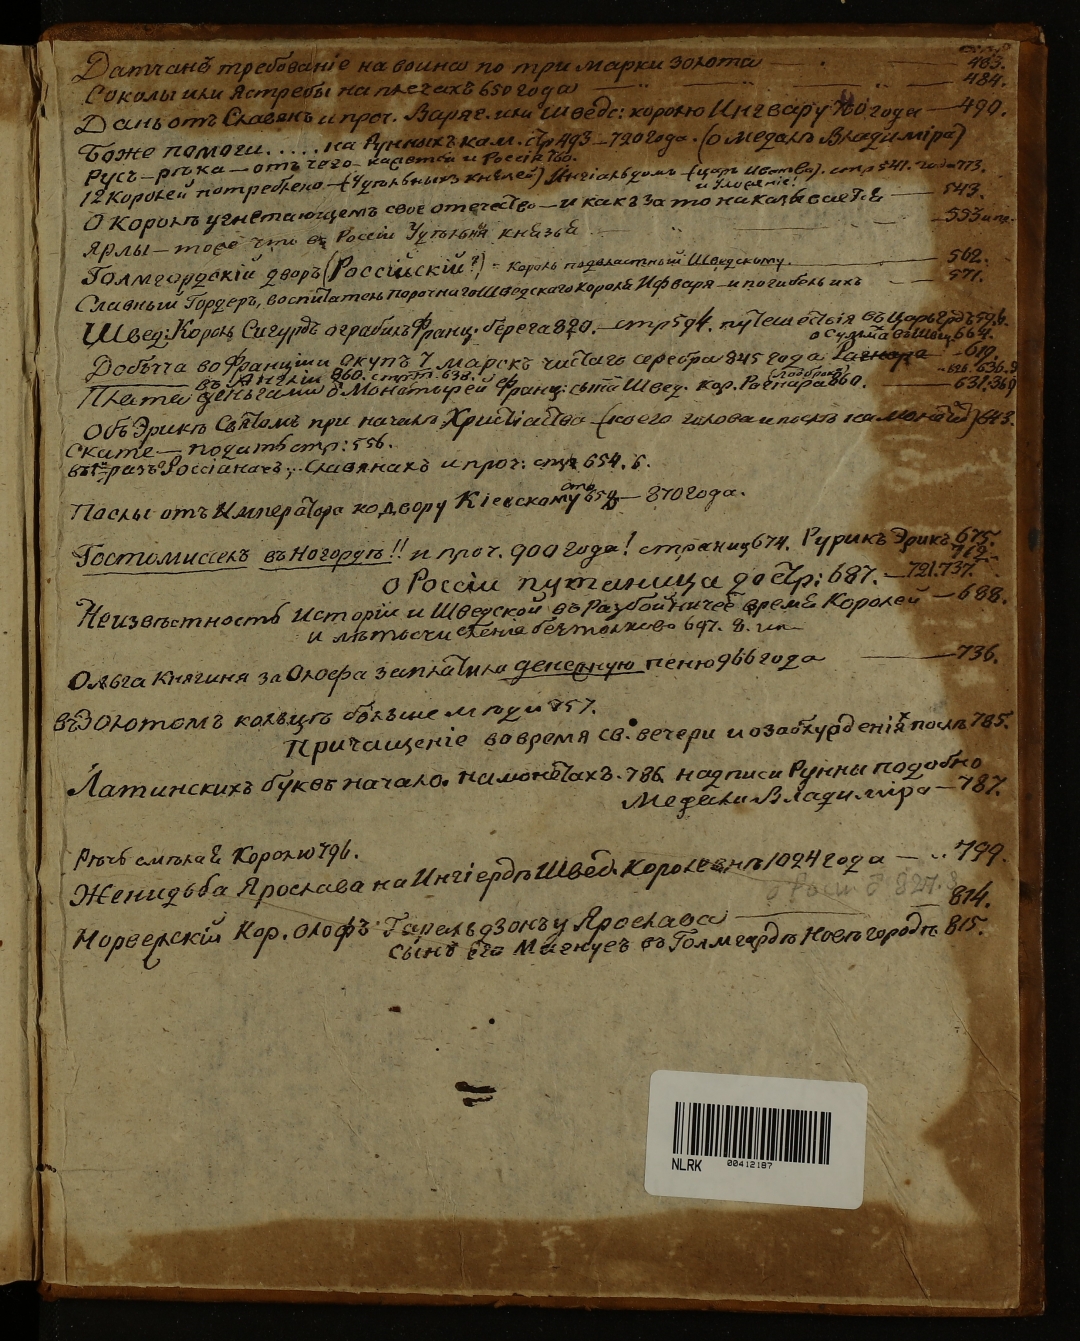 Датчанъ требованіе на воина по три марки золота — 483.
Соколы или Ястребы на плечахъ 650 года — 484.
Дань отъ Славянъ и проч. Варяг. или Шведс: королю Ингвару 760 года — 490.
Боже помоги..... на Рунныхъ кам. стр 493 — 720 года. (о медалѣ Владиміра)
Русь — рѣка — отъ чего
12 королей потреблено — (Удѣльныхъ князей) Ингіальдомъ — (царь Иванъ) . стр 541. года 713.
О Королѣ угнетающемъ свое отечество — и какъ за то наказывается — 543.
Ярлы — тоже что въ Россіи Удѣльныя князья — 553
Голмгордскій дворъ (Россійскій?) - король подвластный Шведскому. — 562.
Славный Гордеръ, воспитатель порочнаго Шведскаго короля Ифвара — и погибель ихъ — 571.
Швед: Король Сигурдъ ограбилъ Франц. берега 820. — стр 594. путешествія въ Царьградъ 596.
Добыча во Франціи окупъ 7 марокъ чистаго серебра 845 года — 619.
въ Англіи 860.
Плата деньгами Монастырей Франц: Швед. кор. 860. — 631.
Объ Эрикѣ Святомъ при началѣ Христіанства (коего голова и послѣ на монетѣ) 643.
Скате — подать стр: 556.
въ 1й разъ о Россіанахъ, Славянахъ и проч: стр 654.
Послы отъ Императора ко двору Кіевскому 659 — 870 года.
Гостомиселъ въ Ногордѣ!! и проч. 900 года! страниц 674. Рурикъ Эрикъ 675.
712.
о Россіи путаница до стр: 687. — 721. 737.
Неизвѣстность Исторіи и Шведской въ Разбойничее время Королей — 688.
и лѣтосчисленіе безтолково 697. 8.
Ольга Княгиня за Олофа заплатила денежную пеню 966 года — 736.
въ Золотомъ кольцѣ болѣше мѣди 757.
Причащеніе во время св. вечери и о заблужденіяхъ послѣ 785.
Латинскихъ буквъ начало. на монетахъ. 786 надписи Рунны подобно
Медали Владиміра — 787.
Рѣчь смѣлая Королю 796.
Женидьба Ярослава на Ингіердѣ Швед. Королевнѣ 1024 года — 799.
814.
Норвежскій Кор. Олофъ Гаральдзонъ у Ярослава
сынъ его Магнусъ въ Голмгардѣ Новѣгородѣ 815.
NLRK 00412187